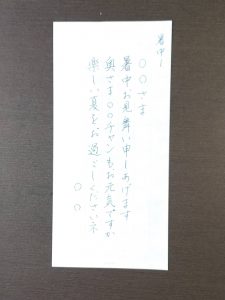 暑中1
〇〇さま
暑中お見舞い申しあげます
奥さま〇〇チャンもお元気ですか
楽しい夏をお過ごしくださいネ
〇〇